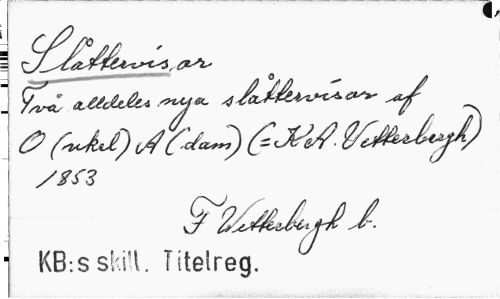 Slåttervisor
Två alldeles nya slåttervisor af
O (nkel) A (dam) (= K A. Wetterbergh)
1853
F Wetterbergh b.
KB:s skill. Titelreg.